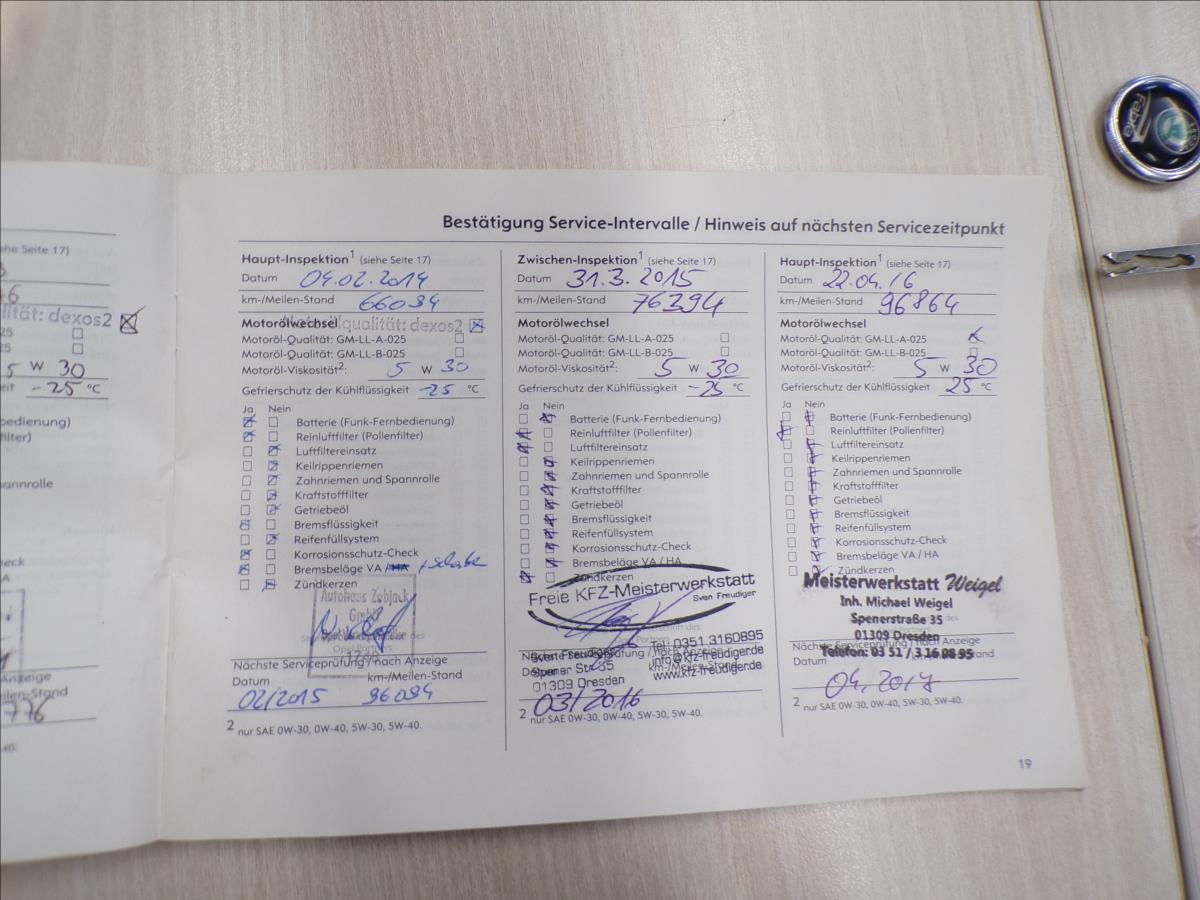 Bestätigung Service-Intervalle / Hinweis auf nächsten Servicezeitpunkt
he Seite 17)
76
lität: dexos2
25
25
5 W 30
eit -25 °C
bedienung)
filter)
annrolle
heck
A
Anzeige
Meilen-Stand
776
Haupt-Inspektion¹ (siehe Seite 17)
Datum 04.02.2014
km-/Meilen-Stand 66094
Motorölwechsel Motorölqualität: dexos2
Motoröl-Qualität: GM-LL-A-025
Motoröl-Qualität: GM-LL-B-025
Motoröl-Viskosität²: 5 W 30
Gefrierschutz der Kühlflüssigkeit -25 °C
Ja Nein
Batterie (Funk-Fernbedienung)
Reinluftfilter (Pollenfilter)
Luftfiltereinsatz
Keilrippenriemen
Zahnriemen und Spannrolle
Kraftstofffilter
Getriebeöl
Bremsflüssigkeit
Reifenfüllsystem
Korrosionsschutz-Check
Bremsbeläge VA / HA
Zündkerzen
Autohaus Zobjack
GmbH
Opel Partners
Nächste Serviceprüfung / nach Anzeige
Datum km-/Meilen-Stand
02/2015 96094
2 nur SAE 0W-30, 0W-40, 5W-30, 5W-40.
Zwischen-Inspektion¹ (siehe Seite 17)
Datum 31.3.2015
km-/Meilen-Stand 76394
Motorölwechsel
Motoröl-Qualität: GM-LL-A-025
Motoröl-Qualität: GM-LL-B-025
Motoröl-Viskosität²: 5 W 30
Gefrierschutz der Kühlflüssigkeit -25 °C
Ja Nein
Batterie (Funk-Fernbedienung)
Reinluftfilter (Pollenfilter)
Luftfiltereinsatz
Keilrippenriemen
Zahnriemen und Spannrolle
Kraftstofffilter
Getriebeöl
Bremsflüssigkeit
Reifenfüllsystem
Korrosionsschutz-Check
Bremsbeläge VA / HA
Zündkerzen
Freie KFZ-Meisterwerkstatt
Sven Freudiger
Sven Freudiger Tel. 0351 3160895
Nächste Serviceprüfung / nach Anzeige
Spener Str. 35 info@kfz-freudiger.de
Datum km-/Meilen-Stand
01309 Dresden www.kfz-freudiger.de
03/2016
2 nur SAE 0W-30, 0W-40, 5W-30, 5W-40.
Haupt-Inspektion¹ (siehe Seite 17)
Datum 22.04.16
km-/Meilen-Stand 96864
Motorölwechsel
Motoröl-Qualität: GM-LL-A-025
Motoröl-Qualität: GM-LL-B-025
Motoröl-Viskosität²: 5 W 30
Gefrierschutz der Kühlflüssigkeit 25 °C
Ja Nein
Batterie (Funk-Fernbedienung)
Reinluftfilter (Pollenfilter)
Luftfiltereinsatz
Keilrippenriemen
Zahnriemen und Spannrolle
Kraftstofffilter
Getriebeöl
Bremsflüssigkeit
Reifenfüllsystem
Korrosionsschutz-Check
Bremsbeläge VA / HA
Zündkerzen
Meisterwerkstatt Weigel
Inh. Michael Weigel
Spenerstraße 35
01309 Dresden
Telefon: 03 51 / 3 16 08 95
Datum
04.2017
2 nur SAE 0W-30, 0W-40, 5W-30, 5W-40.
19
Fabia